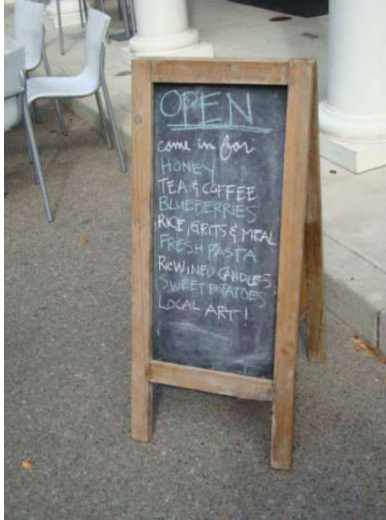 OPEN
come in for
HONEY
TEA & COFFEE
BLUEBERRIES
RICE, GRITS & MEAL
FRESH PASTA
REWINED CANDLES,
SWEET POTATOES
LOCAL ART!